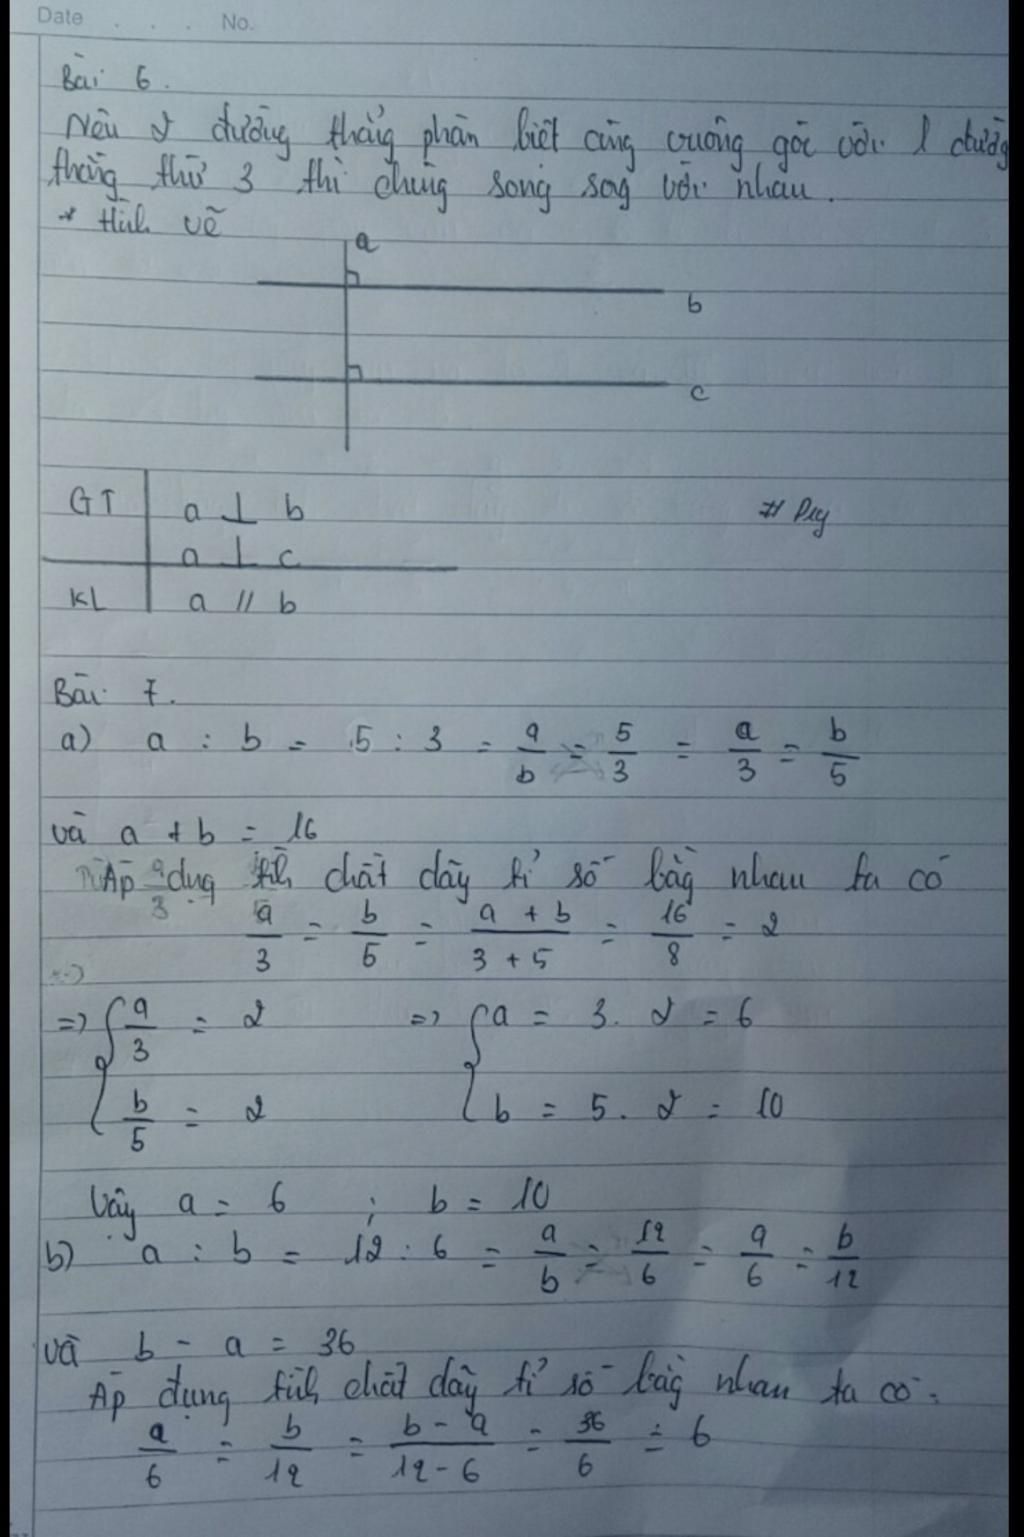 Date . . . No.
Bài 6.
Nếu 2 đường thẳng phân biệt cùng vuông góc với 1 đường
thẳng thứ 3 thì chúng song song với nhau.
* Hình vẽ
a
b
c
GT a ⊥ b
a ⊥ c
KL a // b
Bài 7.
a) a : b = 5 : 3 = a/b = 5/3 = a/3 = b/5
và a + b = 16
Áp dụng tính chất dãy tỉ số bằng nhau ta có
a/3 = b/5 = (a + b)/(3 + 5) = 16/8 = 2
=> { a/3 = 2 => { a = 3. 2 = 6
b/5 = 2 b = 5. 2 = 10
Vậy a = 6 ; b = 10
b) a : b = 12 : 6 = a/b = 12/6 = a/6 = b/12
và b - a = 36
Áp dụng tính chất dãy tỉ số bằng nhau ta có:
a/6 = b/12 = (b - a)/(12 - 6) = 36/6 = 6